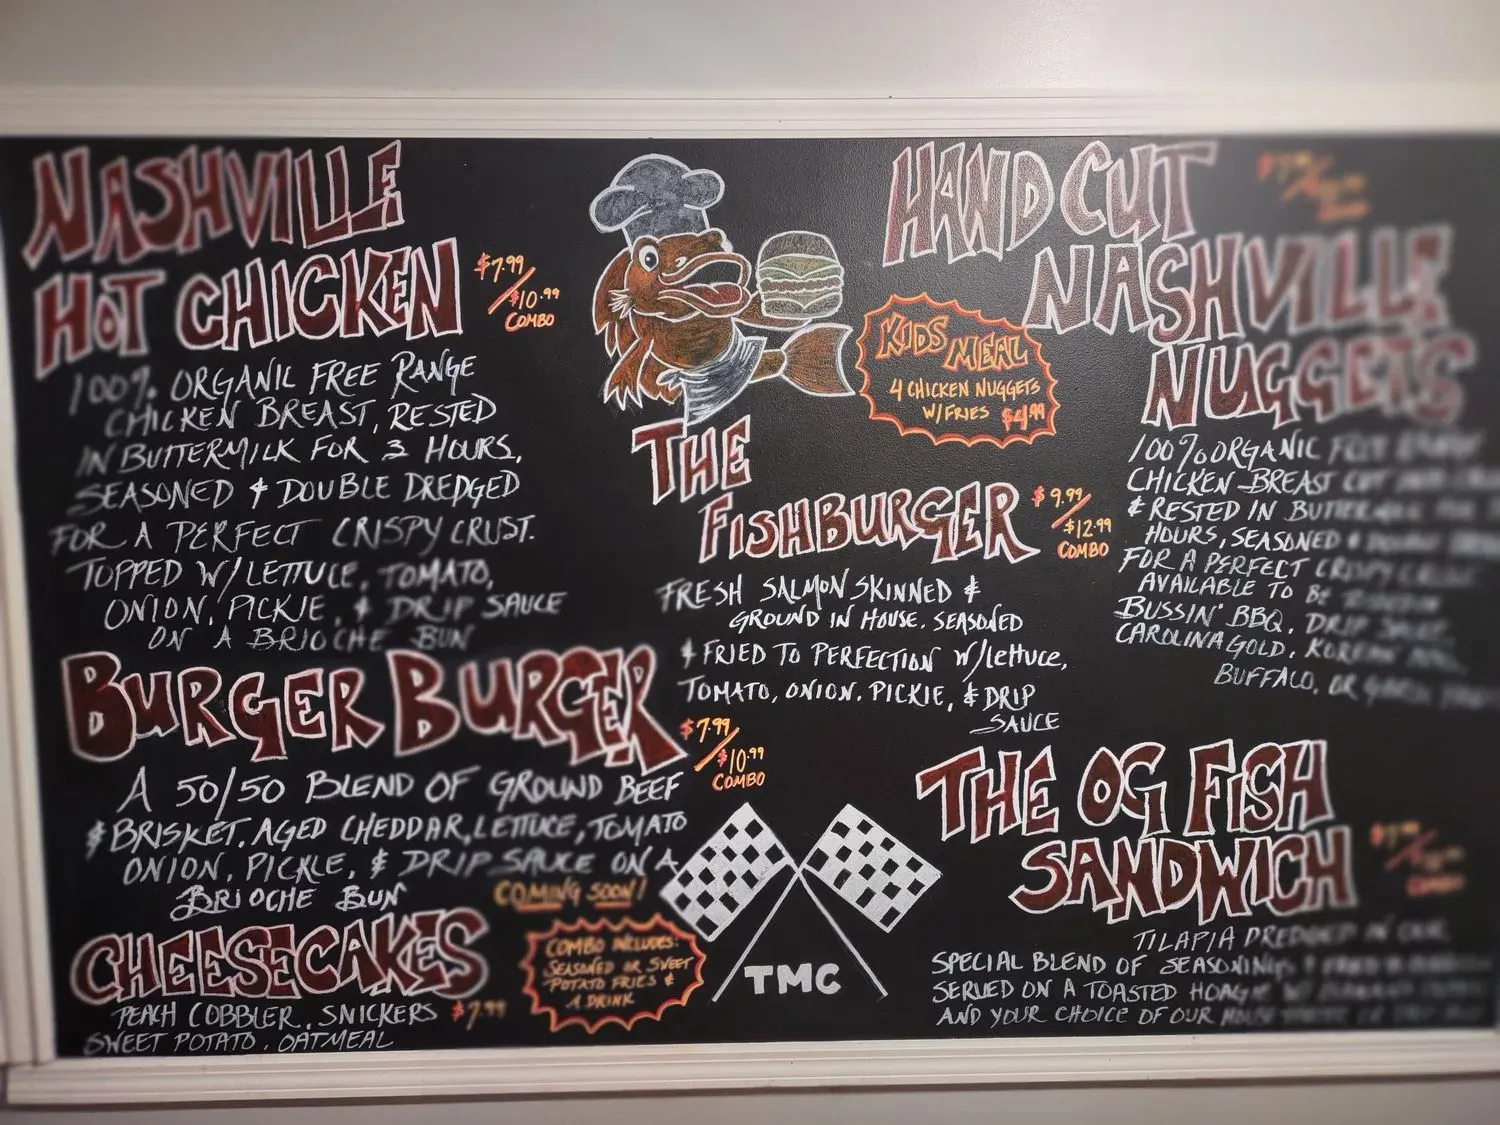 NASHVILLE
HOT CHICKEN
$7.99/
$10.99
COMBO
100% ORGANIC FREE RANGE
CHICKEN BREAST, RESTED
IN BUTTERMILK FOR 3 HOURS,
SEASONED & DOUBLE DREDGED
FOR A PERFECT CRISPY CRUST.
TOPPED W/ LETTUCE, TOMATO,
ONION, PICKLE, & DRIP SAUCE
ON A BRIOCHE BUN
BURGER BURGER
$7.99/
$10.99
COMBO
A 50/50 BLEND OF GROUND BEEF
& BRISKET, AGED CHEDDAR, LETTUCE, TOMATO
ONION, PICKLE, & DRIP SAUCE ON A
BRIOCHE BUN
COMING SOON!
CHEESECAKES
PEACH COBBLER, SNICKERS $7.99
SWEET POTATO, OATMEAL
COMBO INCLUDES:
SEASONED OR SWEET
POTATO FRIES &
A DRINK
KIDS MEAL
4 CHICKEN NUGGETS
W/FRIES $4.99
THE
FISHBURGER
$9.99/
$12.99
COMBO
FRESH SALMON SKINNED &
GROUND IN HOUSE. SEASONED
& FRIED TO PERFECTION W/lettuce,
TOMATO, ONION, PICKLE, & DRIP
SAUCE
TMC
HAND CUT
NASHVILLE
NUGGETS
100% ORGANIC FREE
CHICKEN BREAST CUT
& RESTED IN BUTTERMILK
HOURS, SEASONED &
FOR A PERFECT CRISPY CRUST
AVAILABLE TO BE
BUSSIN' BBQ, DRIP SAUCE,
CAROLINA GOLD, KOREAN
BUFFALO, OR
THE OG FISH
SANDWICH
COMBO
TILAPIA DREDGED IN OUR
SPECIAL BLEND OF SEASONINGS
SERVED ON A TOASTED HOAGIE
AND YOUR CHOICE OF OUR